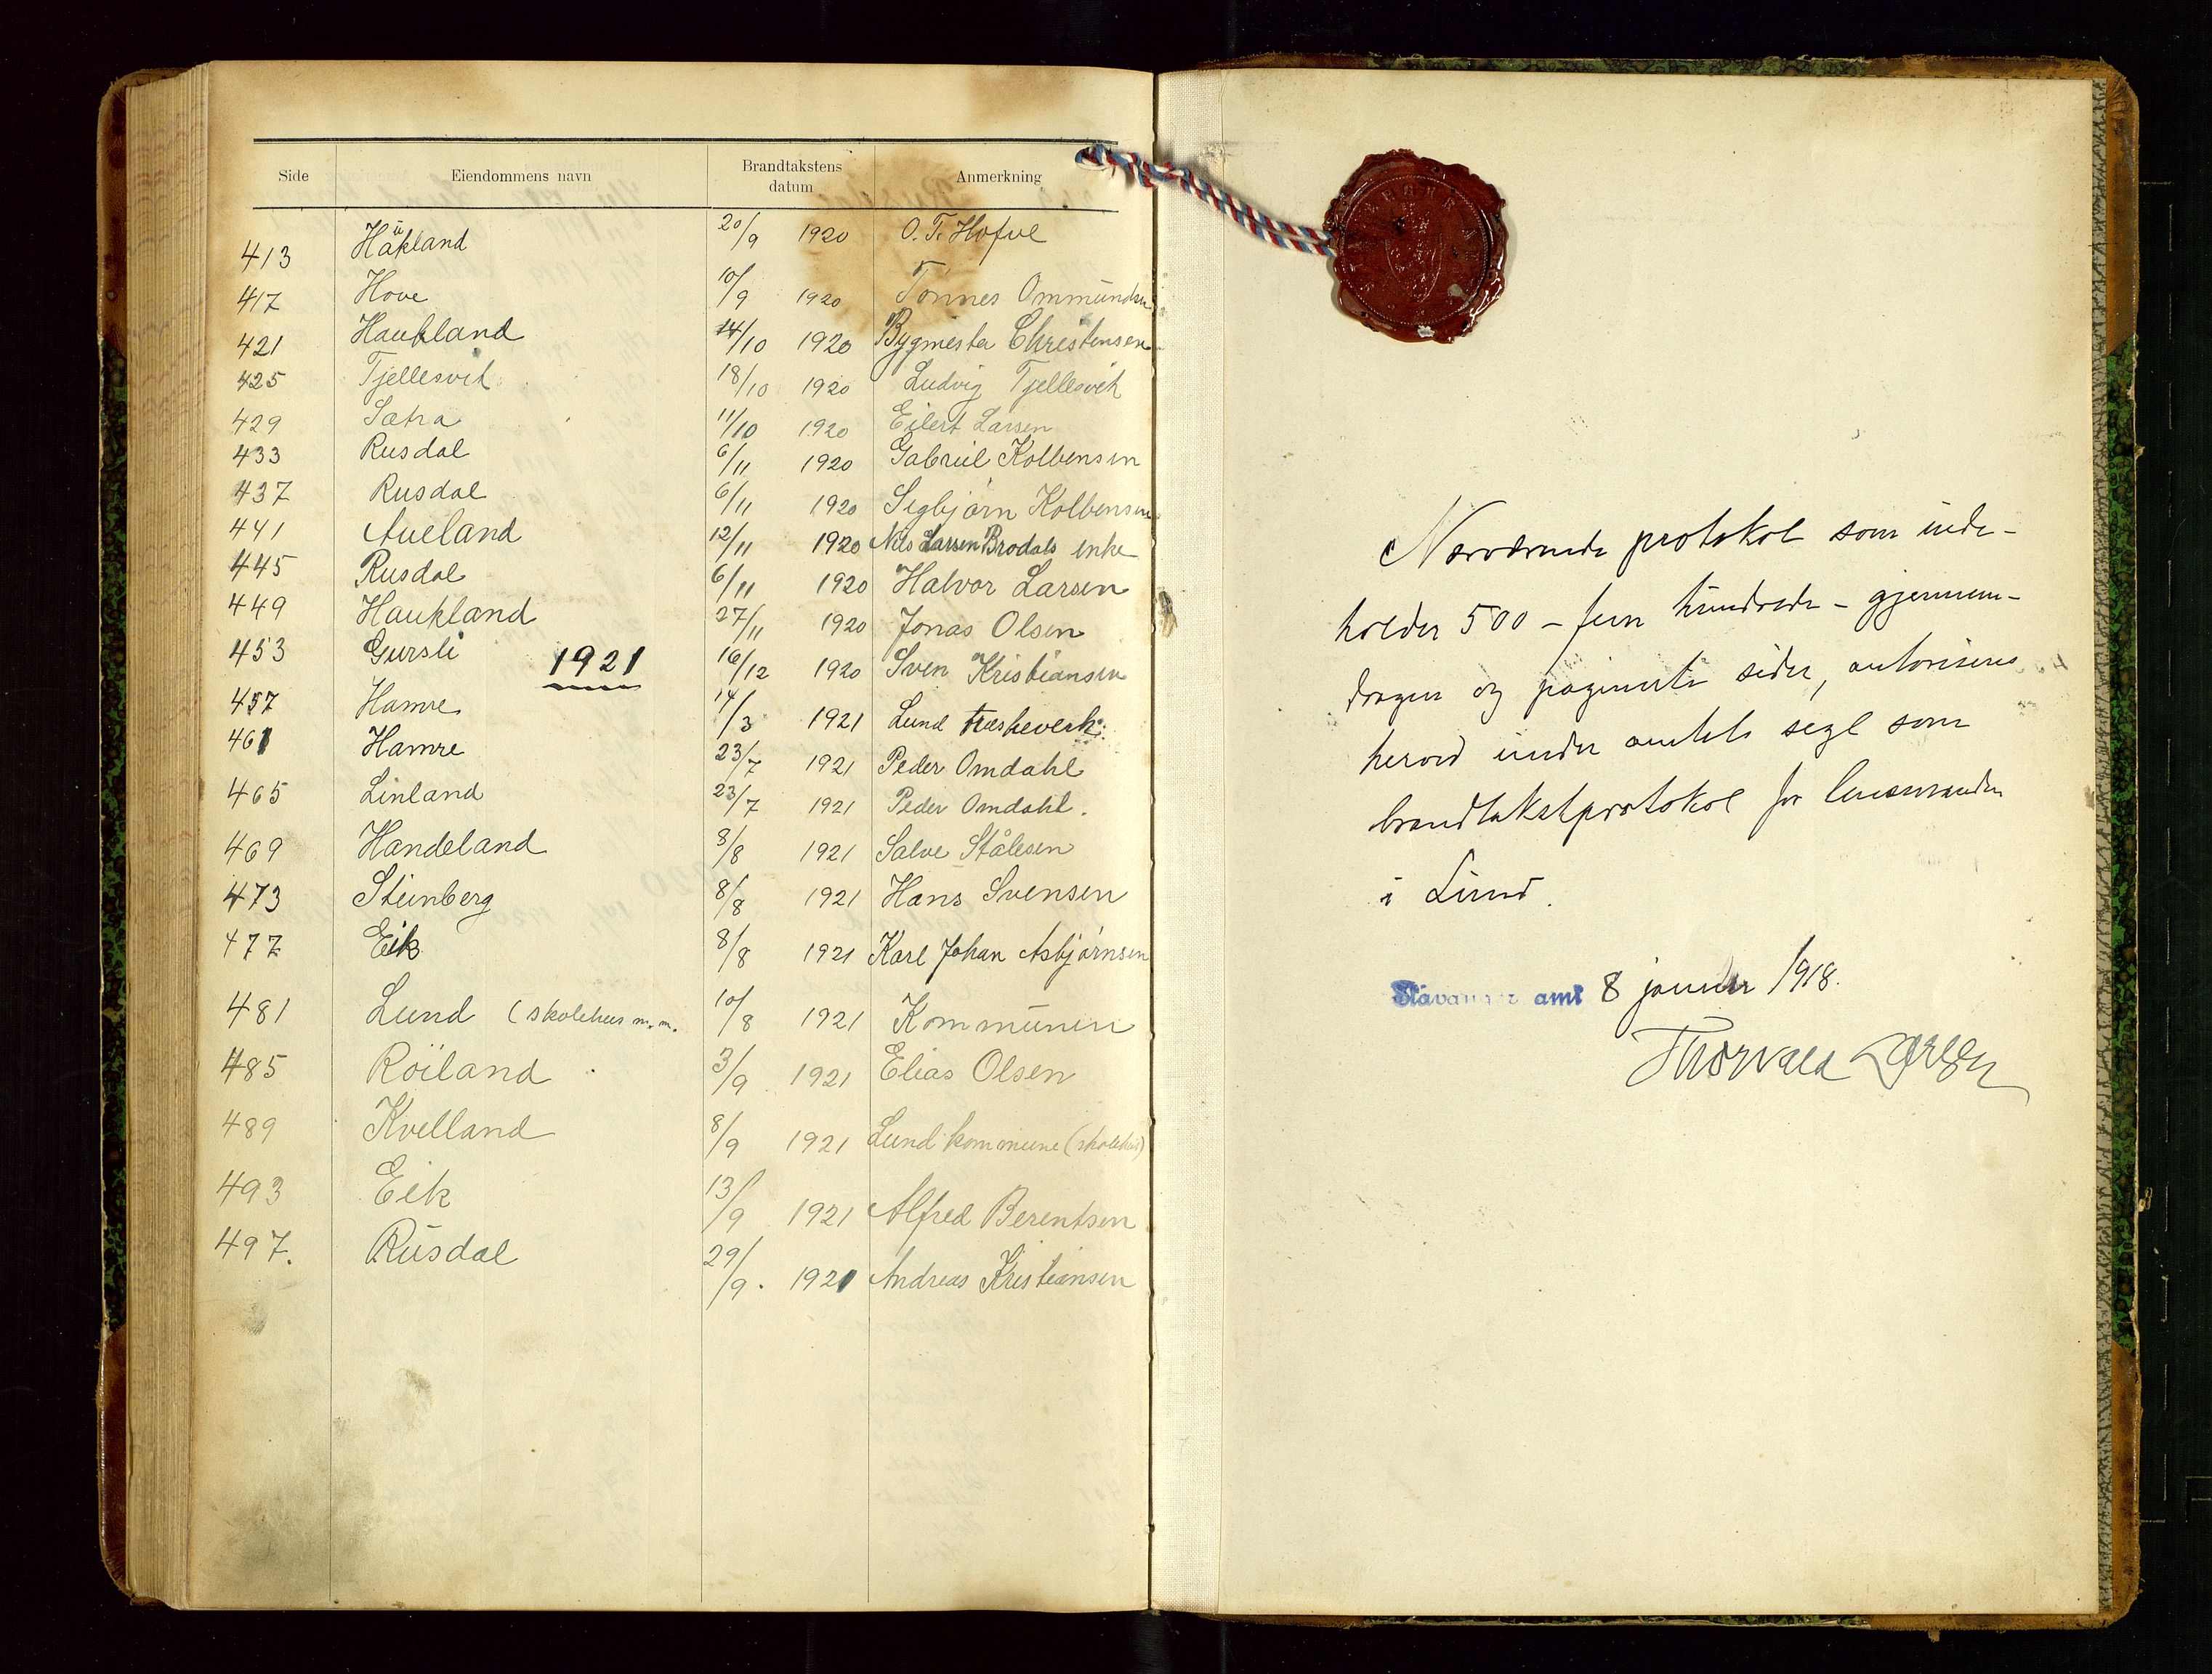 Side Eiendommens navn Brandtakstens datum Anmerkning
413 Haukland 20/9 1920 O. T. Hofve
417 Hove 10/9 1920 Tønnes Ommundsen
421 Haukland 14/10 1920 Bygmester Christensen
425 Tjellesvik 18/10 1920 Ludvig Tjellesvik
429 Sætra 11/10 1920 Eilert Larsen
433 Rusdal 6/11 1920 Gabriel Kolbensen
437 Rusdal 6/11 1920 Segbjørn Kolbensen
441 Aueland 12/11 1920 Nils Larsen Brodals enke
445 Rusdal 6/11 1920 Halvor Larsen
449 Haukland 27/11 1920 Jonas Olsen
453 Gursli 16/12 1920 Sven Kristiansen
1921
457 Hamre 14/3 1921 Lund træskeverk
461 Hamre 23/7 1921 Peder Omdahl
465 Linland 23/7 1921 Peder Omdahl.
469 Handeland 8/8 1921 Salve Stålesen
473 Steinberg 8/8 1921 Hans Svensen
477 Eik 8/8 1921 Karl Johan Asbjørnsen
481 Lund (skolehus m.m. 10/8 1921 Kommunen
485 Röiland 3/9 1921 Elias Olsen
489 Kvelland 8/9 1921 Lund kommune (skolehus)
493 Eik 13/9 1921 Alfred Berentsen
497. Rusdal 29/9. 1921 Andreas Kristiansen
Nærværende protokol som inde-
holder 500 - fem hundrede - gjennem-
dragne og paginerte sider, autoriseres
herved under amtets segl som
brandtakstprotokol for lensmanden
i Lund.
Stavanger amt 8 januar 1918.
Thorvald Larsen